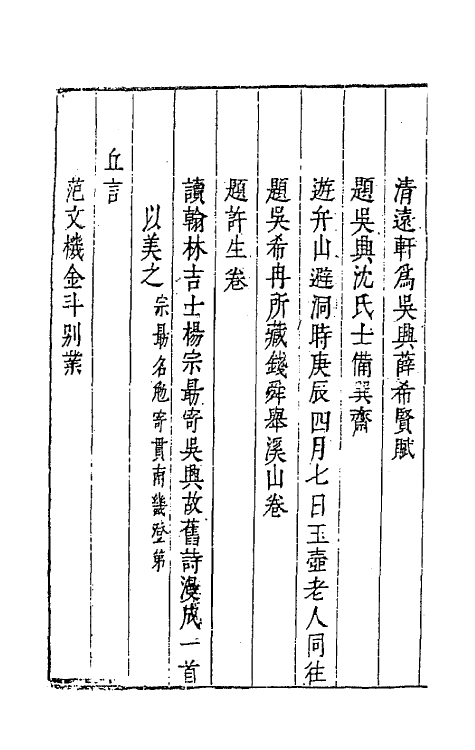 清遠軒爲吳興薛希賢賦
題吳興沈氏士備巽齋
遊弁山避洞時庚辰四月七日玉壺老人同往
題吳希冉所藏錢舜舉溪山卷
題許生卷
讀翰林吉士楊宗勗寄吳興故舊詩漫成一首
以美之宗勗名勉寄貫南畿登第
五言
范文機金斗别業